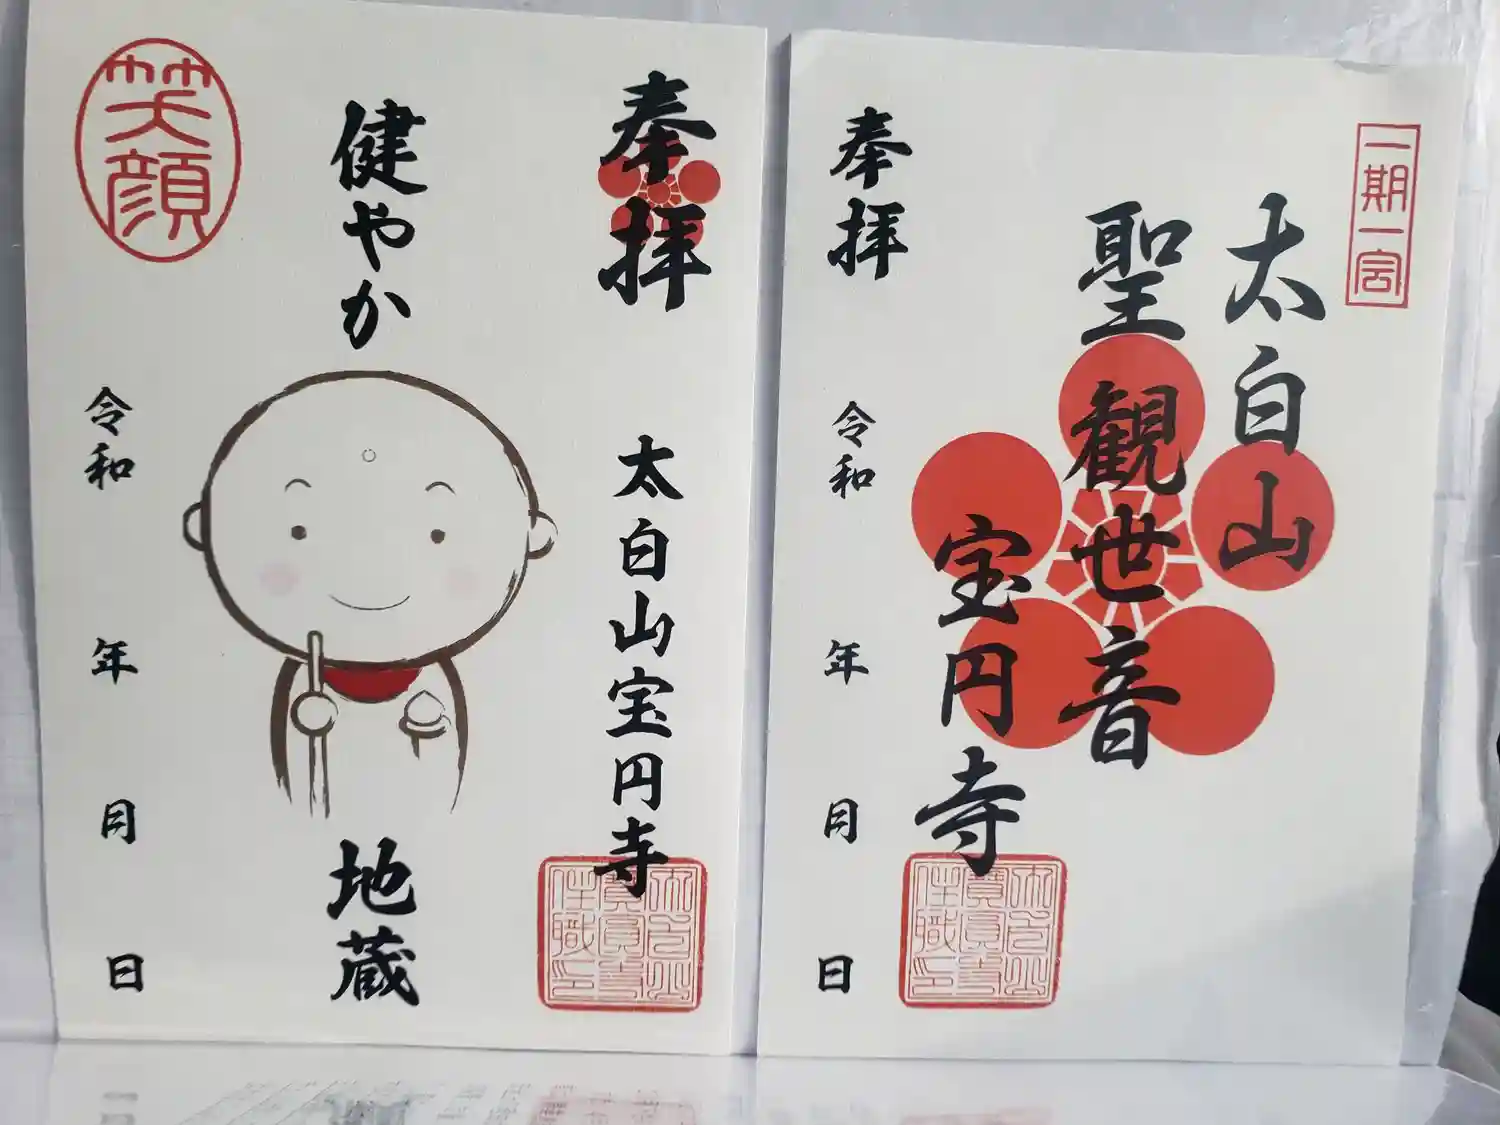 奉拝
太白山宝円寺
健やか
地蔵
笑顔
令和 年 月 日
一期一宮
太白山
聖観世音
宝円寺
奉拝
令和 年 月 日